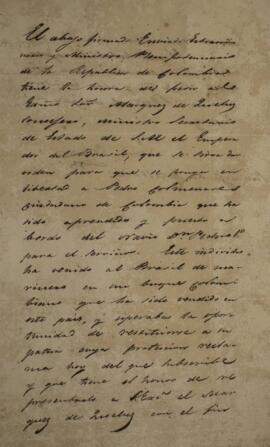 El abajo firmado Enviado Extraordi
nario y Ministro Plenipotenciario
de la Republica de Colombia
tiene la honra del pedir al
Exmo Señor Marquez de Queluz
Consejero, Ministro Secretario
de Estado de S.M. el Empera
dor del Brasil, que se sirva dar
orden para que se ponga en
libertad a Pedro Colmenares
Ciudadano de Colombia que ha
sido aprendido y puesto a
bordo del Navio Dn Pedro 1º
para el servicio. Este individuo
ha venido al Brasil de ma
rinero en un buque Colom
biano que ha sido vendido en
este pais, y esperaba la opor
tunidad de restituirse a su
patria cuya proteccion recla
ma hoy del que subscribe
y que tiene el honor de re
presentarlo a S. Exa el Mar
quez de Queluz con el fin